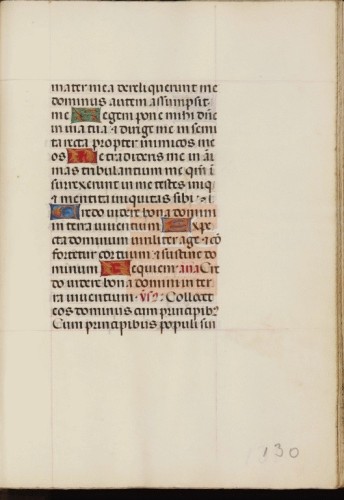 mater mea dereliquerunt me
dominus autem assumpsit
me Legem pone mihi dñe
in via tua ⁊ dirige me in semi
ta recta propter inimicos me
os Ne tradideris me in ãi
mas tribulantium me qm̃ i
surrexerunt in me testes iniq
⁊ mentita iniquitas sibi
Credo videre bona domini
in terra viventium Expe
cta dominum viriliter age ⁊ cõ
fortetur cor tuum ⁊ sustine do
minum Requiem añа Cre
do videre bona domini in ter
ra viventium vs̃ Collocet
eos dominus cum principibꝫ
Cum principibus populi sui
130